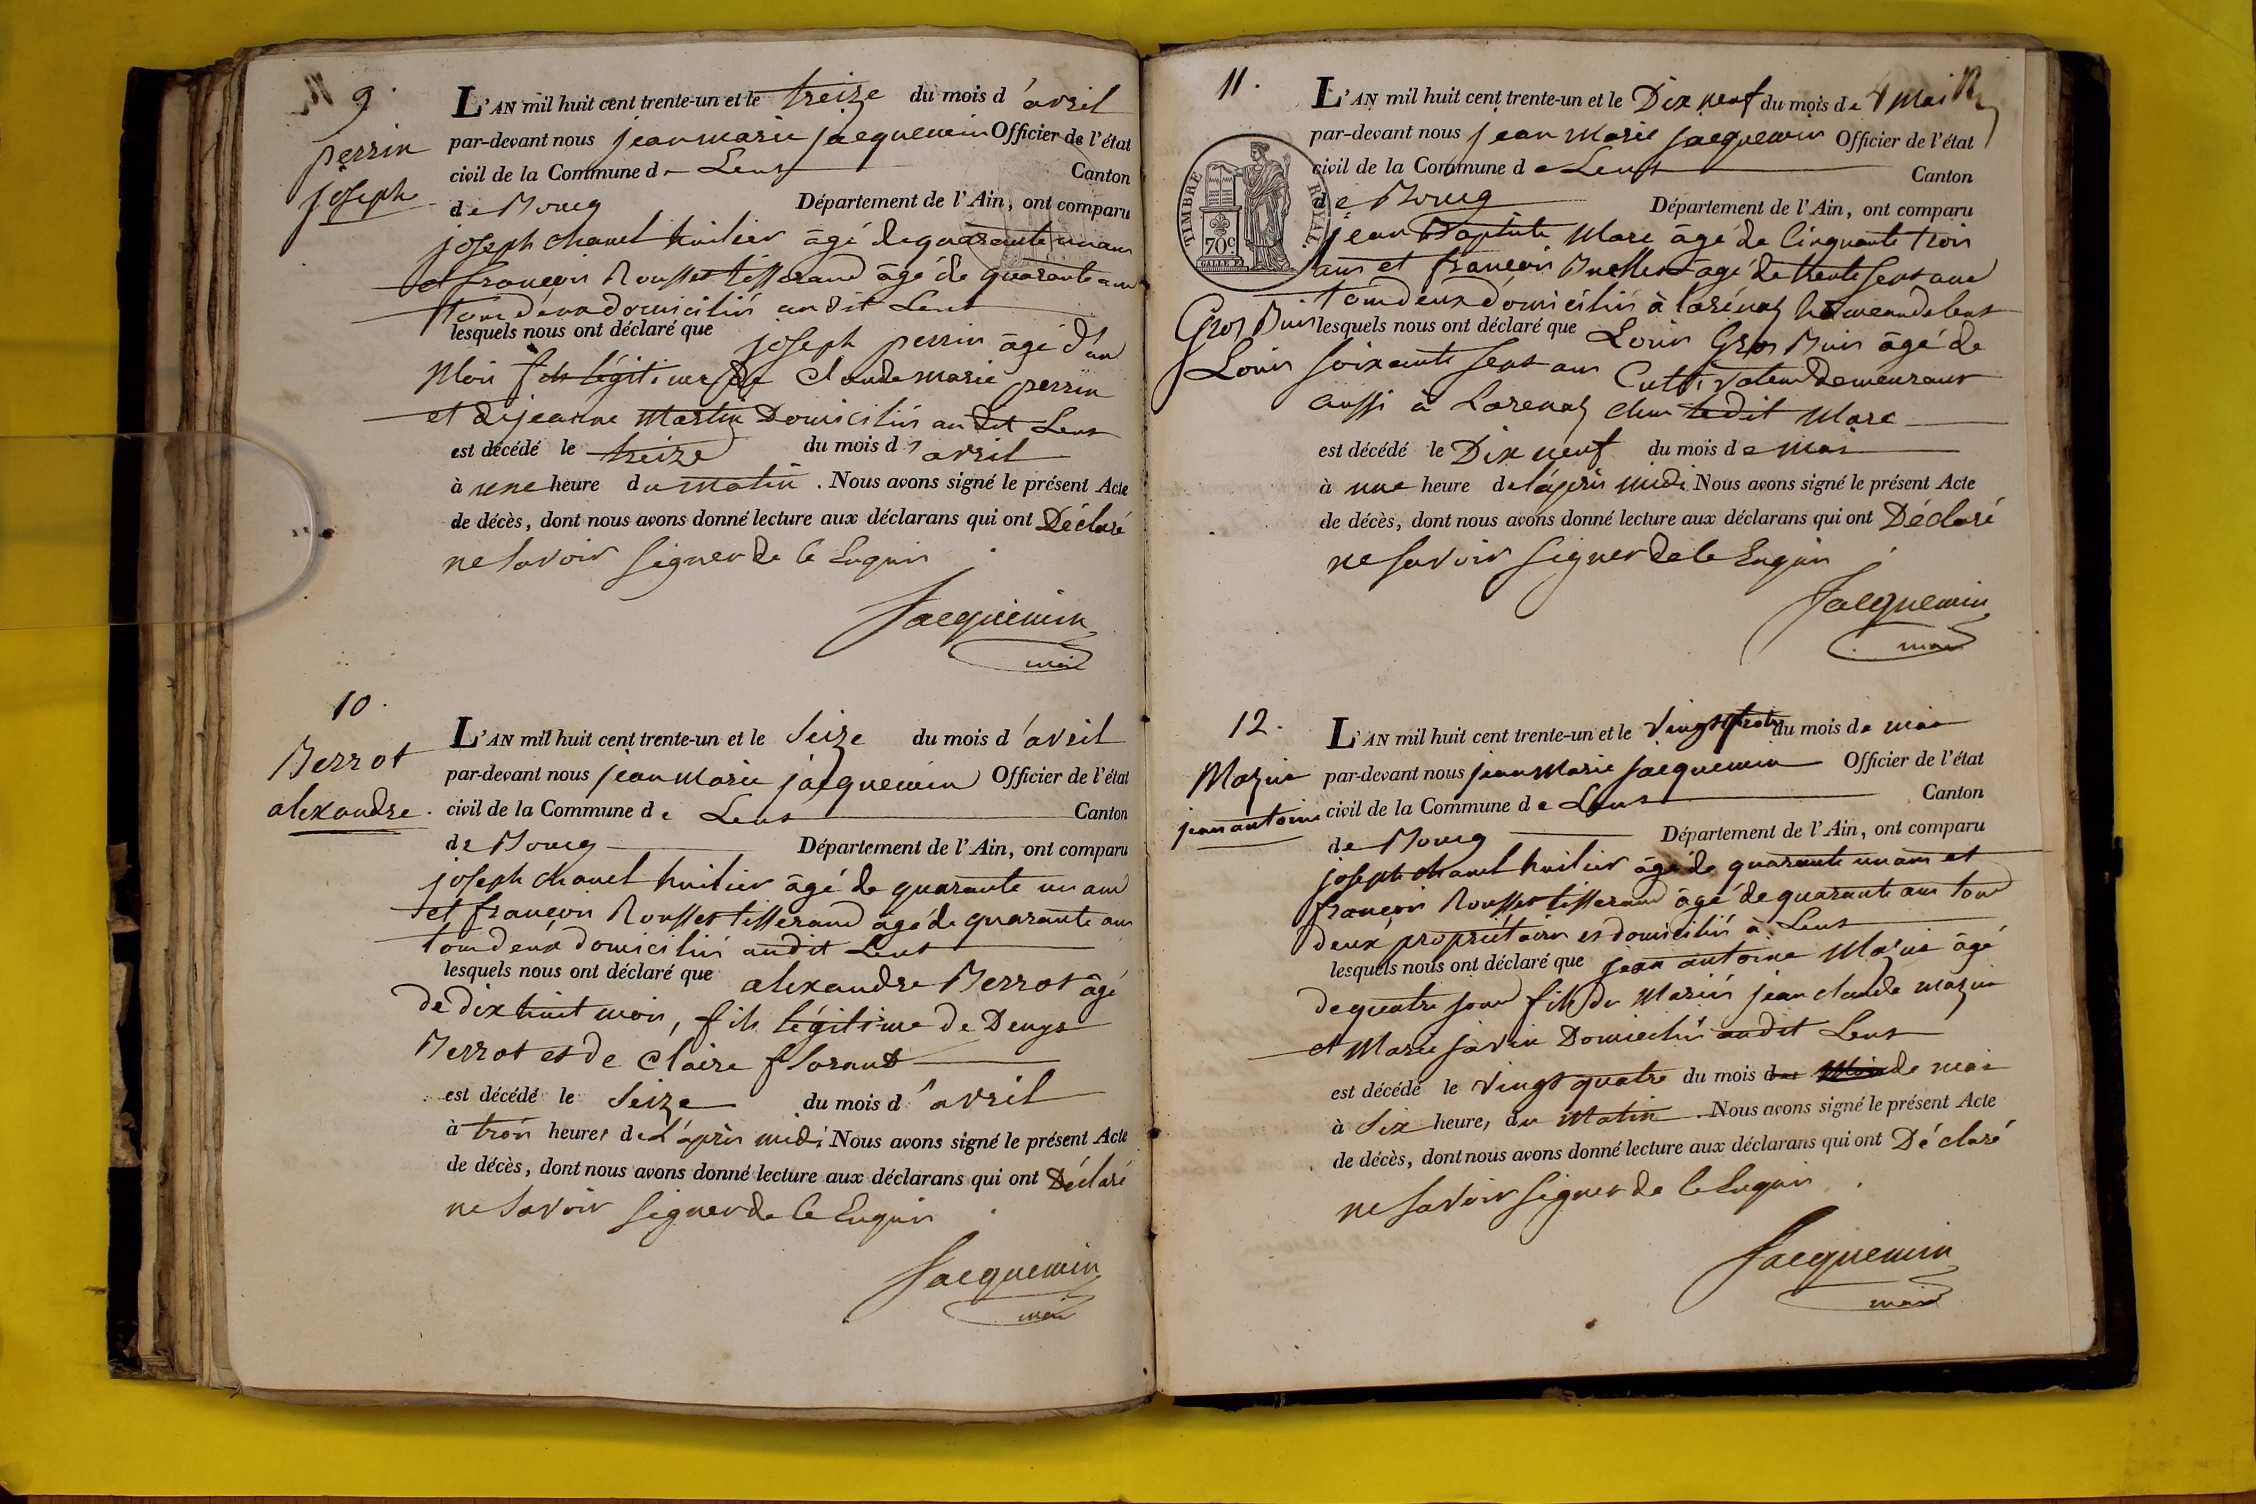 9.
perrin
joseph
L'AN mil huit cent trente-un et le treize du mois d'avril
par-devant nous jean marie jacquemin Officier de l'état
civil de la Commune de Lent Canton
de Bourg Département de l'Ain, ont comparu
joseph chanel huilier âgé de quarante un ans
et françois Rousset tisserand âgé de quarante ans
tous deux domiciliés au dit Lent
lesquels nous ont déclaré que joseph perrin âgé d'un
Mois fils légitime de Claude marie perrin
et de jeanne Martin Domiciliés au dit Lent
est décédé le treize du mois d'avril
à une heure du matin. Nous avons signé le présent Acte
de décès, dont nous avons donné lecture aux déclarans qui ont Déclaré
ne savoir signer de ce Enquis
Jacquemin
maire
10.
Berrot
alexandre.
L'AN mil huit cent trente-un et le Seize du mois d'avril
par-devant nous jean marie jacquemin Officier de l'état
civil de la Commune de Lent Canton
de Bourg Département de l'Ain, ont comparu
joseph chanel huilier âgé de quarante un ans
et françois Rousset tisserand âgé de quarante ans
tous deux domiciliés audit Lent
lesquels nous ont déclaré que alexandre Berrot âgé
de dix huit mois, fils légitime de Denys
Berrot et de Claire florant
est décédé le Seize du mois d'avril
à trois heures de L'après midi Nous avons signé le présent Acte
de décès, dont nous avons donné lecture aux déclarans qui ont Déclaré
ne savoir signer de ce Enquis
Jacquemin
maire
11.
L'AN mil huit cent trente-un et le Dix neuf du mois de Mai
par-devant nous jean Marie jacquemin Officier de l'état
civil de la Commune de Lent Canton
de Bourg Département de l'Ain, ont comparu
TIMBRE ROYAL.
70c
jean Baptiste Marc âgé de Cinquante trois
ans et françois âgé de trente sept ans
tous deux domiciliés à Lorénaz hameau de Lent
Gros Buis
Louis
lesquels nous ont déclaré que Louis Gros Buis âgé de
soixante sept ans Cultivateur demeurant
aussi à Lorenaz chez ledit Marc
est décédé le Dix neuf du mois de mai
à une heure de l'après midi Nous avons signé le présent Acte
de décès, dont nous avons donné lecture aux déclarans qui ont Déclaré
ne savoir signer de ce Enquis
Jacquemin
maire
12.
Mazuir
jean antoine
L'AN mil huit cent trente-un et le Vingt du mois de mai
par-devant nous jean Marie jacquemin Officier de l'état
civil de la Commune de Lent Canton
de Bourg Département de l'Ain, ont comparu
joseph chanel huilier âgé de quarante un ans et
françois Rousset tisserand âgé de quarante ans tous
deux propriétaires et domiciliés à Lent
lesquels nous ont déclaré que jean antoine Mazuir âgé
de quatre jours fils de Mariés jean claude mazuir
et Marie Domiciliés audit Lent
est décédé le Vingt quatre du mois de mai
à Six heures du Matin. Nous avons signé le présent Acte
de décès, dont nous avons donné lecture aux déclarans qui ont Déclaré
ne savoir signer de ce Enquis
Jacquemin
maire